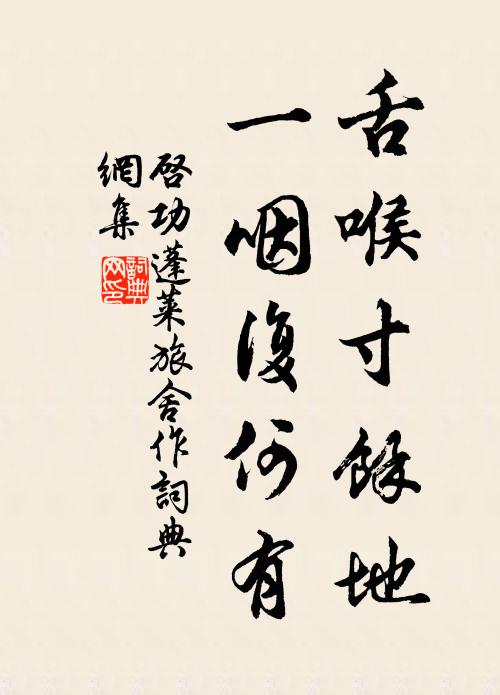 舌喉寸餘地
一咽復何有
啓功蓬萊旅舍作詞典
網集
詞典網印